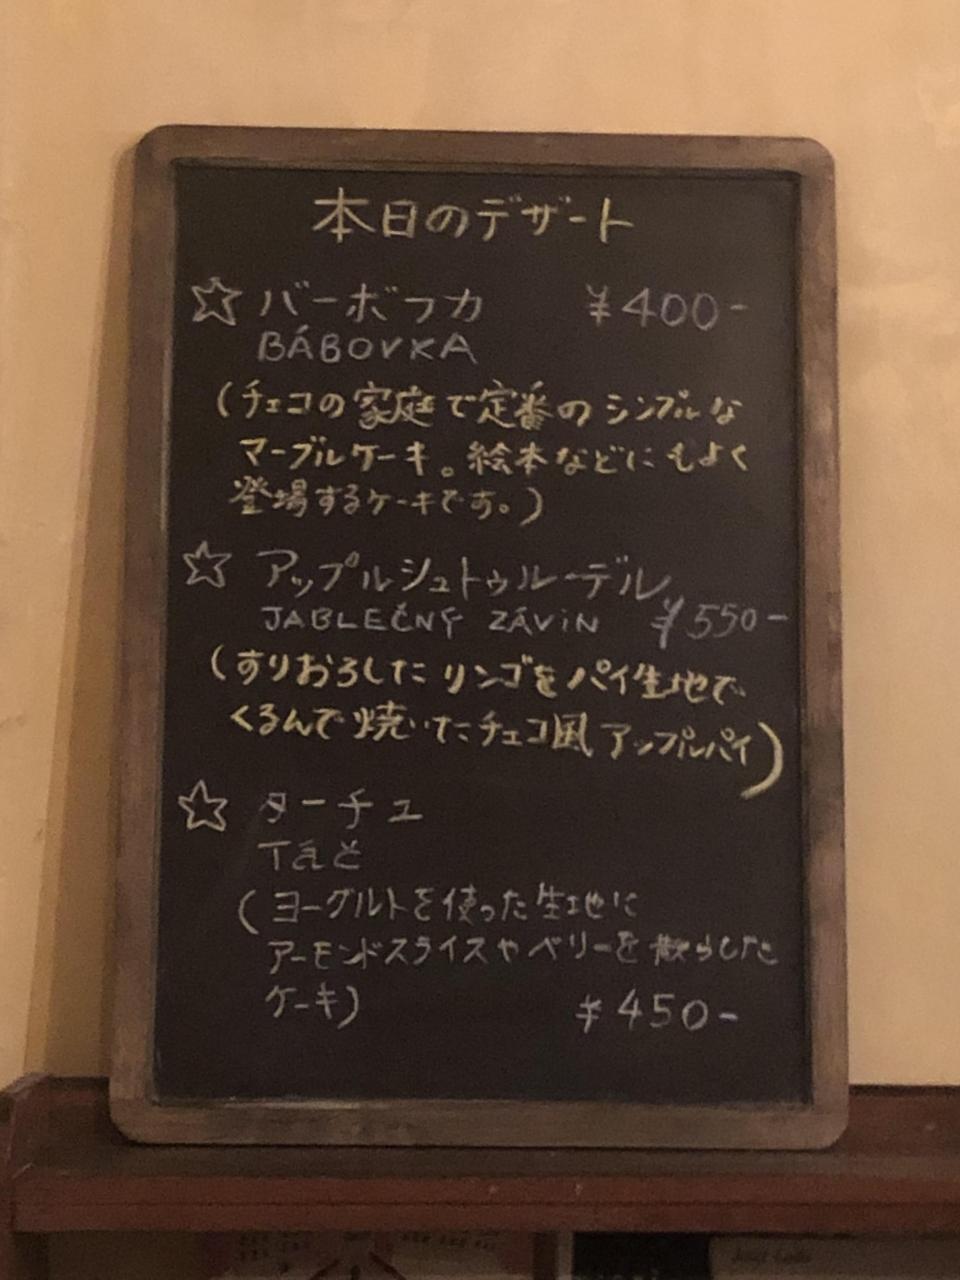 本日のデザート
☆ バーボフカ ¥400-
BÁBOVKA
(チェコの家庭で定番のシンプルな
マーブルケーキ。絵本などにもよく
登場するケーキです。)
☆ アップルシュトゥルーデル
JABLEČNÝ ZÁViN ¥550-
(すりおろしたリンゴをパイ生地で
くるんで焼いたチェコ風アップルパイ)
☆ ターチュ
Táč
(ヨーグルトを使った生地に
アーモンドスライスやベリーを散らした
ケーキ)
¥450-